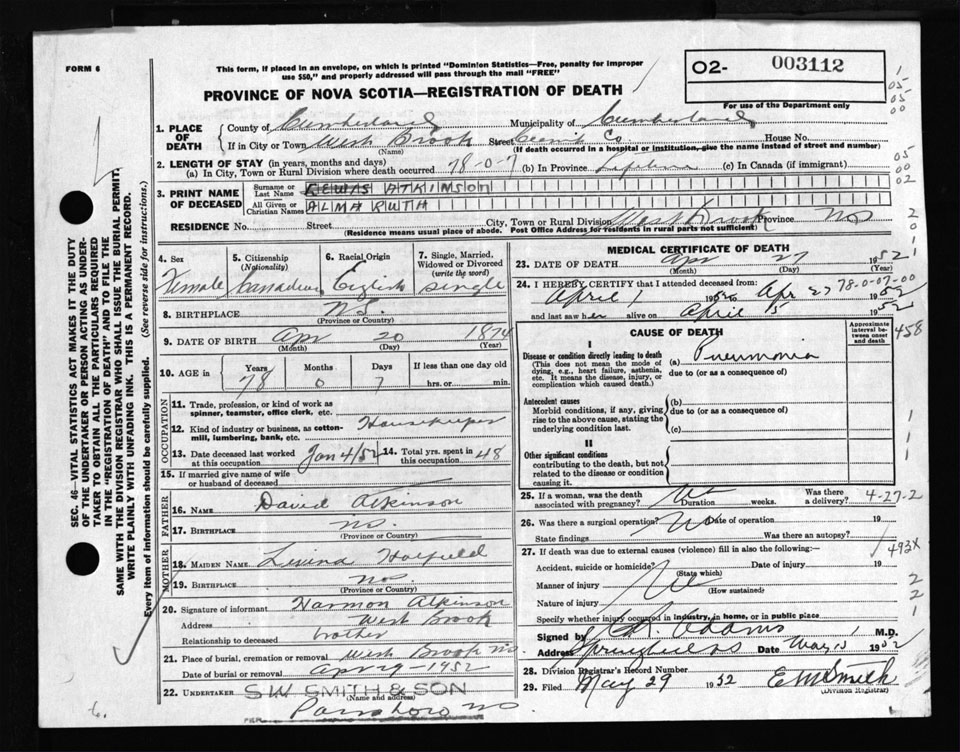 FORM 6
This form, if placed in an envelope, on which is printed "Dominion Statistics—Free, penalty for improper
use $50," and properly addressed will pass through the mail "FREE"
PROVINCE OF NOVA SCOTIA—REGISTRATION OF DEATH
O2- 003112
For use of the Department only
1. PLACE OF DEATH
County of Cumberland Municipality of Cumberland
If in City or Town West Brook Street Co House No.
(Name) (If death occurred in a hospital or institution, give the name instead of street and number)
2. LENGTH OF STAY (in years, months and days)
(a) In City, Town or Rural Division where death occurred 78-0-7 (b) In Province Lifetime (c) In Canada (if immigrant)
3. PRINT NAME OF DECEASED
Surname or Last Name ATKINSON
All Given or Christian Names ALMA RUTH
RESIDENCE No. Street City, Town or Rural Division West Brook Province NS
(Residence means usual place of abode. Post Office Address for residents in rural parts not sufficient)
4. Sex Female
5. Citizenship (Nationality) Canadian
6. Racial Origin English
7. Single, Married, Widowed or Divorced (write the word) Single
8. BIRTHPLACE N.S.
(Province or Country)
9. DATE OF BIRTH Apr 20 1874
(Month) (Day) (Year)
10. AGE in Years Months Days If less than one day old
78 0 7 hrs. or min.
OCCUPATION
11. Trade, profession, or kind of work as
spinner, teamster, office clerk, etc.
12. Kind of industry or business, as cotton-
mill, lumbering, bank, etc. Housekeeper
13. Date deceased last worked at this occupation Jan 4/52
14. Total yrs. spent in this occupation 48
15. If married give name of wife
or husband of deceased
FATHER
16. NAME David Atkinson
17. BIRTHPLACE NS.
(Province or Country)
MOTHER
18. MAIDEN NAME Hatfield
19. BIRTHPLACE NS
(Province or Country)
20. Signature of informant Harmon Atkinson
Address West Brook
Relationship to deceased brother
21. Place of burial, cremation or removal West Brook NS.
Date of burial or removal Apr 29-1952
22. UNDERTAKER S.W. SMITH & SON
(Name and address)
Parrsboro NS
MEDICAL CERTIFICATE OF DEATH
23. DATE OF DEATH Apr 27 1952
(Month) (Day) (Year)
24. I HEREBY CERTIFY that I attended deceased from:
April 1 1952 to Apr 27 1952
78-0-07-00
and last saw her alive on April 15 1952
CAUSE OF DEATH
Approximate interval between onset and death
I
Disease or condition directly leading to death
(This does not mean the mode of
dying, e.g., heart failure, asthenia,
etc. It means the disease, injury, or
complication which caused death.)
(a) Pneumonia
due to (or as a consequence of)
Antecedent causes
Morbid conditions, if any, giving
rise to the above cause, stating the
underlying condition last.
(b)
due to (or as a consequence of)
(c)
II
Other significant conditions
contributing to the death, but not
related to the disease or condition
causing it.
25. If a woman, was the death
associated with pregnancy? Duration weeks. Was there a delivery?
26. Was there a surgical operation? No Date of operation 19
State findings Was there an autopsy?
27. If death was due to external causes (violence) fill in also the following:—
Accident, suicide or homicide? Date of injury 19
(State which)
Manner of injury
(How sustained)
Nature of injury
Specify whether injury occurred in industry, in home, or in public place
Signed by Adams M.D.
Address Springhill NS Date May 1 1952
28. Division Registrar's Record Number
29. Filed May 29 1952 E M Smith
(Division Registrar)
458
4-27-2
493X
SEC. 46—VITAL STATISTICS ACT MAKES IT THE DUTY
OF THE UNDERTAKER OR PERSON ACTING AS UNDER-
TAKER TO OBTAIN ALL THE PARTICULARS REQUIRED
IN THE "REGISTRATION OF DEATH" AND TO FILE THE
SAME WITH THE DIVISION REGISTRAR WHO SHALL ISSUE THE BURIAL PERMIT,
WRITE PLAINLY WITH UNFADING INK. THIS IS A PERMANENT RECORD.
Every item of information should be carefully supplied. (See reverse side for instructions.)